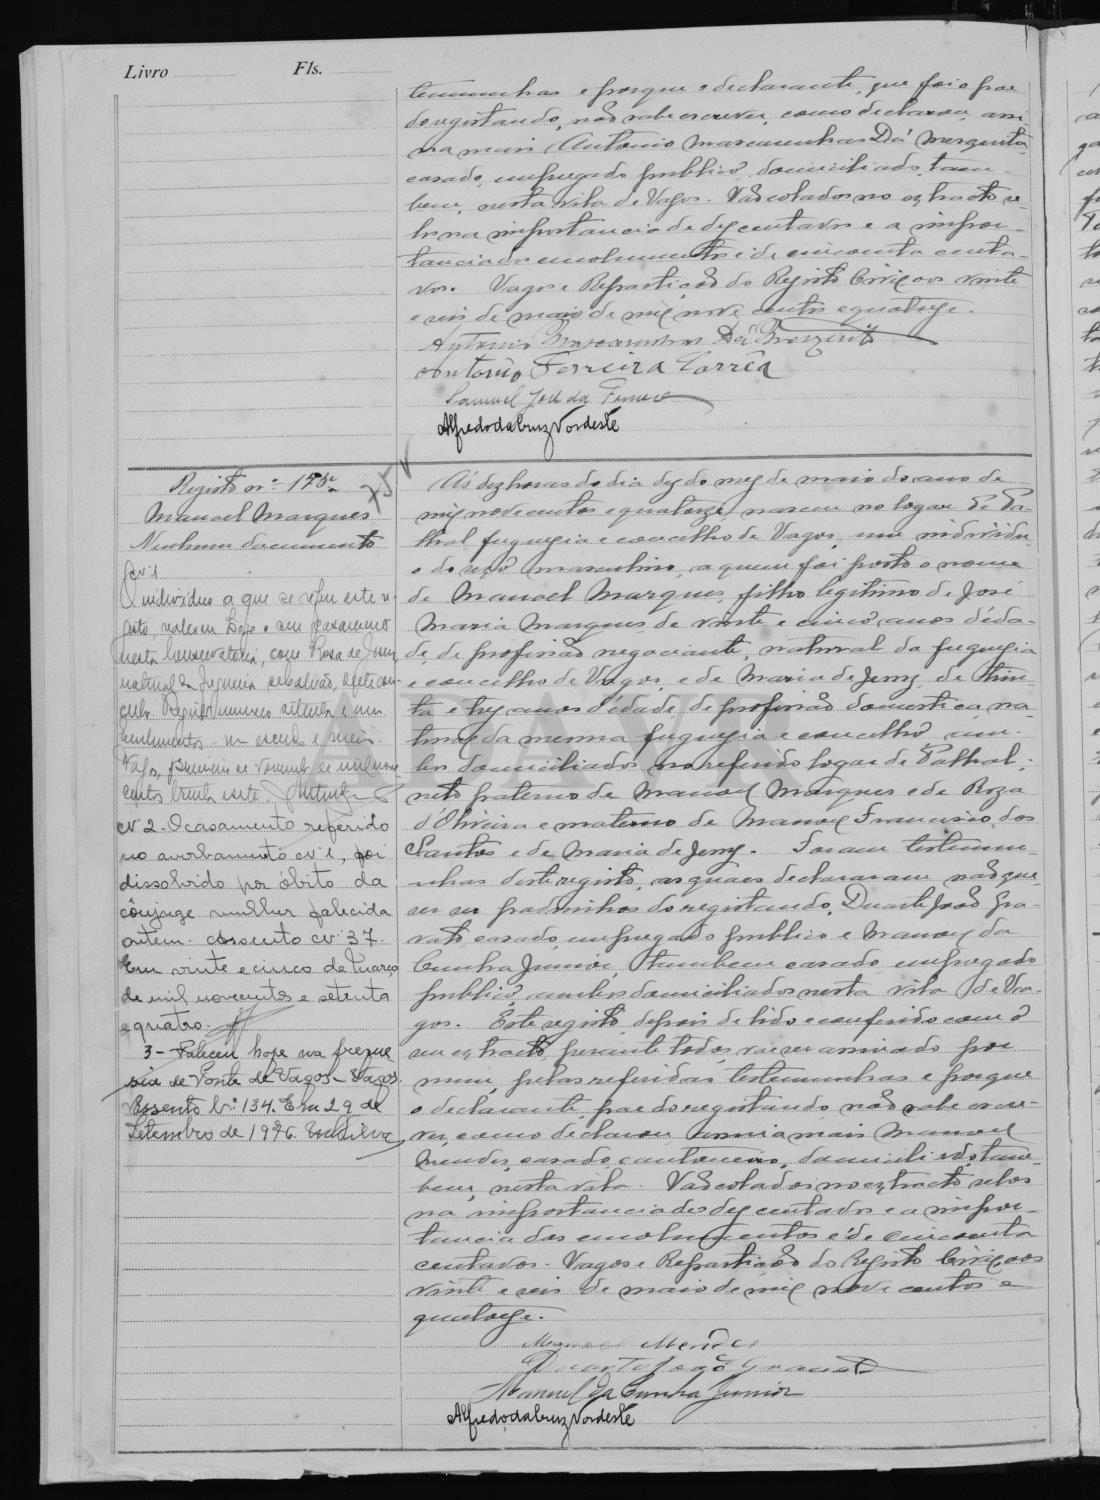 Livro Fls.
temunhas e porque o declarante, que foi o pae
do registando, não sabe escrever, como declarou, assi-
na mais Antonio Mascarenhas Dá Mesquita,
casado, empregado publico, domiciliado, tam-
bem, nesta vila de Vagos. Vão colados no extracto se-
los na importancia de dez centavos e a impor-
tancia dos emolumentos é de cincoenta centa-
vos. Vagos e Repartição do Registo Civil aos vinte
e seis de maio de mil nove centos e quatorze.
Antonio Mascarenhas Dá Mesquita
António Ferreira Corrêa
Samuel José da
Alfredo da Cruz Nordeste
Registo nº
Manoel Marques
Nenhum documento
Nº 1
O individuo a que se refere este re-
gisto, contraiu hoje o seu casamento
nesta Conservatoria, com Rosa de Jesus
natural da freguesia de
Registo numero setenta e um
Emolumentos um escudo e meio.
Vagos, de Novembro de mil nove
centos trinta e sete.
Nº 2. O casamento referido
no averbamento nº 1, foi
dissolvido por óbito da
cônjuge mulher falecida
ontem. Assento nº 37.
Em vinte e cinco de Março
de mil novecentos e setenta
e quatro.
3 - Faleceu hoje na fregue
sia de Ponte de Vagos - Vagos.
Assento N.º 134. Em 29 de
Setembro de 1976.
Ás dez horas do dia dez do mez de maio do ano de
mil nove centos e quatorze, nasceu no logar de Pa-
thal, freguezia e concelho de Vagos, um individu-
o do sexo masculino, a quem foi posto o nome
de Manoel Marques, filho legitimo de José
Maria Marques, de vinte e cinco anos d'éda-
de, de profissão negociante, natural da freguezia
e concelho de Vagos, e de Maria de Jesus, de trin-
ta e trez anos d'édade, de profissão domestica, na-
tural da mesma freguezia e concelho, am-
bos domiciliados no referido logar de Pathal;
neto paterno de Manoel Marques e de Roza
d'Oliveira e materno de Manoel Francisco dos
Santos e de Maria de Jesus. Foram testemu-
nhas deste registo, as quaes declararam não que-
rer ser padrinhos do registando, Duarte João Gra-
vato, casado, empregado publico e Manoel da
Cunha Junior, tambem casado, empregado
publico, ambos domiciliados nesta vila de Va-
gos. Este registo, depois de lido e conferido com o
seu extracto, perante todos, vae ser assinado por
mim, pelas referidas testemunhas e porque
o declarante, pae do registando, não sabe escre-
ver, como declarou assina mais Manoel
Mendes, casado, cantoneiro, domiciliado, tam-
bem, nesta vila. Vão colados no extracto selos
na importancia de dez centavos e a impor-
tancia dos emolumentos é de cincoenta
centavos. Vagos e Repartição do Registo Civil aos
vinte e seis de maio de mil nove centos e
quatorze.
Manoel Mendes
Duarte João Gravato
Manuel da Cunha Junior
Alfredo da Cruz Nordeste